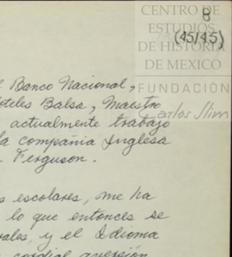 CENTRO DE
ESTUDIOS
DE HISTORIA
DE MEXICO
FUNDACIÓN
Carlos Slim
8
(45/45)
Banco Nacional,
Hoteles Balsa, Maestro
actualmente trabajo
la compañia Inglesa
Ferguson.
escolares, me ha
lo que entonces se
y el Idioma
cordial aversión